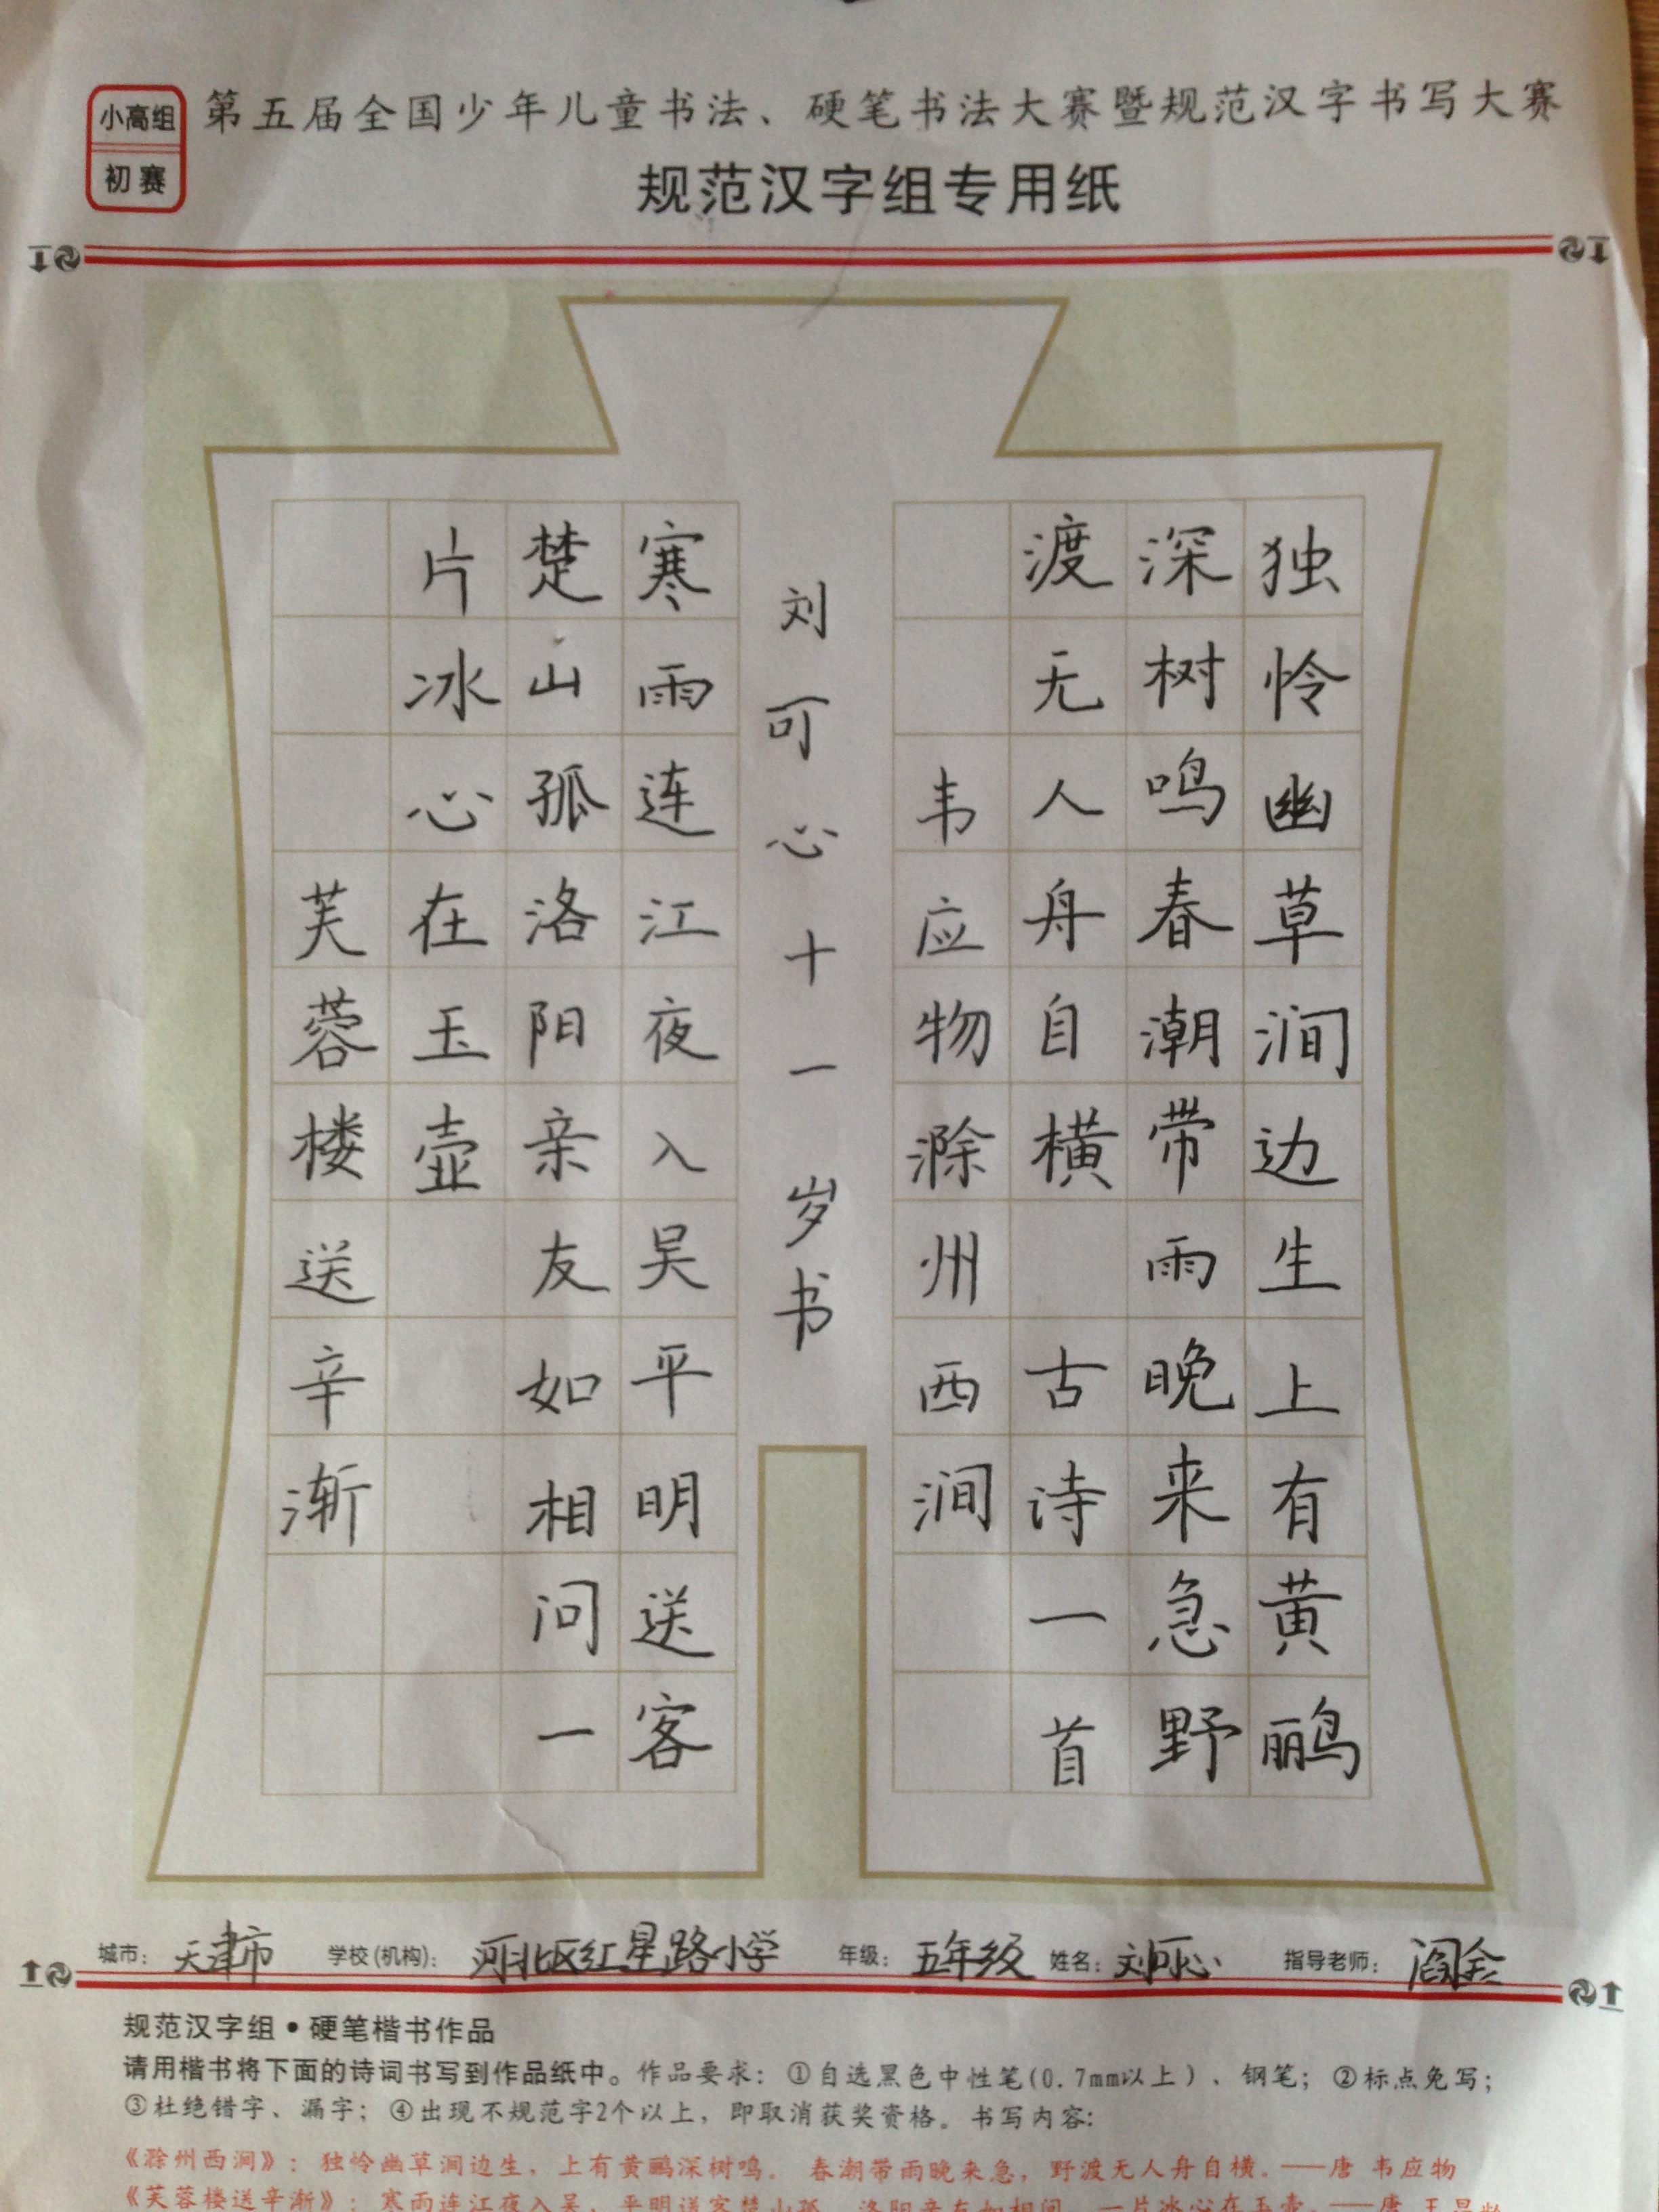 小高组
初赛
第五届全国少年儿童书法、硬笔书法大赛暨规范汉字书写大赛
规范汉字组专用纸
独怜幽草涧边生上有黄鹂
深树鸣春潮带雨晚来急野
渡无人舟自横 古诗一首
韦应物滁州西涧
刘可心十一岁书
寒雨连江夜入吴平明送客
楚山孤洛阳亲友如相问一
片冰心在玉壶
芙蓉楼送辛渐
城市: 天津市 学校(机构): 河北区红星路小学 年级: 五年级 姓名: 刘可心 指导老师: 阎
规范汉字组•硬笔楷书作品
请用楷书将下面的诗词书写到作品纸中。作品要求:①自选黑色中性笔(0.7mm以上)、钢笔;②标点免写;
③杜绝错字、漏字;④出现不规范字2个以上,即取消获奖资格。书写内容:
《滁州西涧》:独怜幽草涧边生,上有黄鹂深树鸣。春潮带雨晚来急,野渡无人舟自横。——唐 韦应物
《芙蓉楼送辛渐》:寒雨连江夜入吴,平明送客楚山孤。洛阳亲友如相问,一片冰心在玉壶。——唐 王昌龄